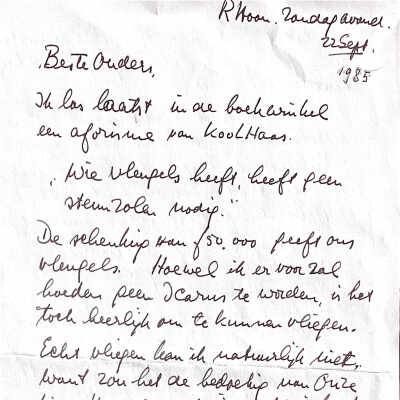 RHoon. Zondagavond.
22 Sept.
1985
Beste Ouders,
Ik las laatst in de boekwinkel
een aforisme van Koolhaas.
"Wie vleugels heeft, heeft geen
steunzolen nodig."
De schenking van f50.000 geeft ons
vleugels. Hoewel ik er voor zal
hoeden geen Icarus te worden, is het
toch heerlijk om te kunnen vliegen.
Echt vliegen kan ik natuurlijk niet,
want zou het de bedoeling van Onze